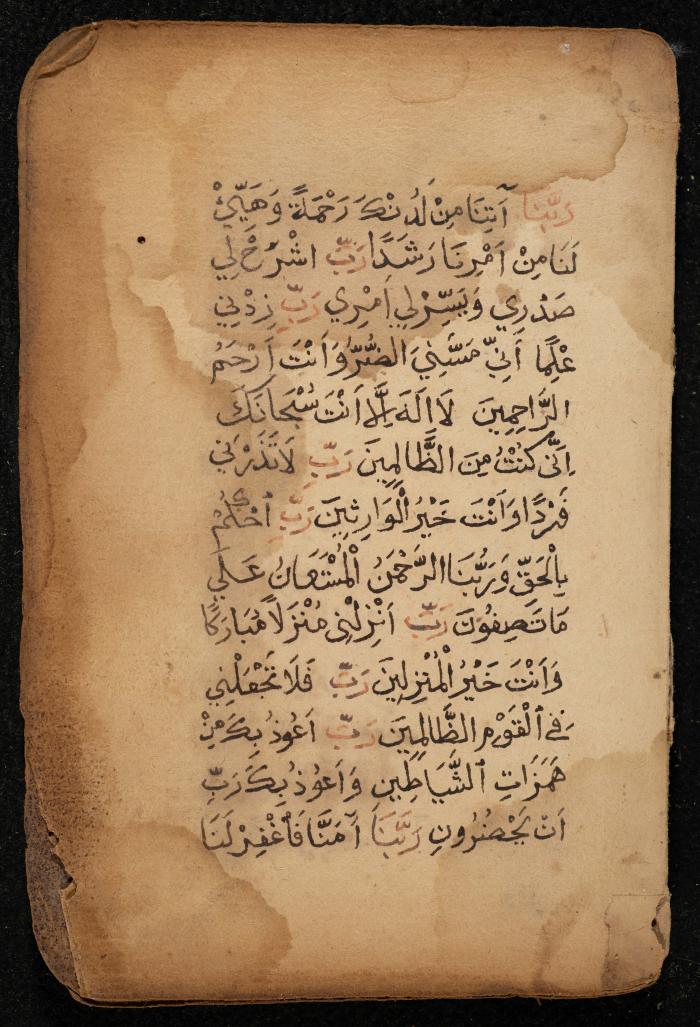 رَبَّنَا آتِنَا مِنْ لَدُنْكَ رَحْمَةً وَهَيِّئْ
لَنَا مِنْ اَمْرِنَا رَشَدًا رَبِّ اشْرَحْ لِي
صَدْرِي وَيَسِّرْ لِي اَمْرِي رَبِّ زِدْنِي
عِلْمًا اَنِّي مَسَّنِيَ الضُّرُّ وَاَنْتَ اَرْحَمُ
الرَّاحِمِينَ لَا اِلَهَ اِلَّا اَنْتَ سُبْحَانَكَ
اِنِّي كُنْتُ مِنَ الظَّالِمِينَ رَبِّ لَا تَذَرْنِي
فَرْدًا وَاَنْتَ خَيْرُ الْوَارِثِينَ رَبِّ احْكُمْ
بِالْحَقِّ وَرَبُّنَا الرَّحْمَنُ الْمُسْتَعَانُ عَلَى
مَا تَصِفُونَ رَبِّ اَنْزِلْنِي مُنْزَلًا مُبَارَكًا
وَاَنْتَ خَيْرُ الْمُنْزِلِينَ رَبِّ فَلَا تَجْعَلْنِي
فِي الْقَوْمِ الظَّالِمِينَ رَبِّ اَعُوذُ بِكَ مِنْ
هَمَزَاتِ الشَّيَاطِينِ وَاَعُوذُ بِكَ رَبِّ
اَنْ يَحْضُرُونِ رَبَّنَا آمَنَّا فَاغْفِرْ لَنَا